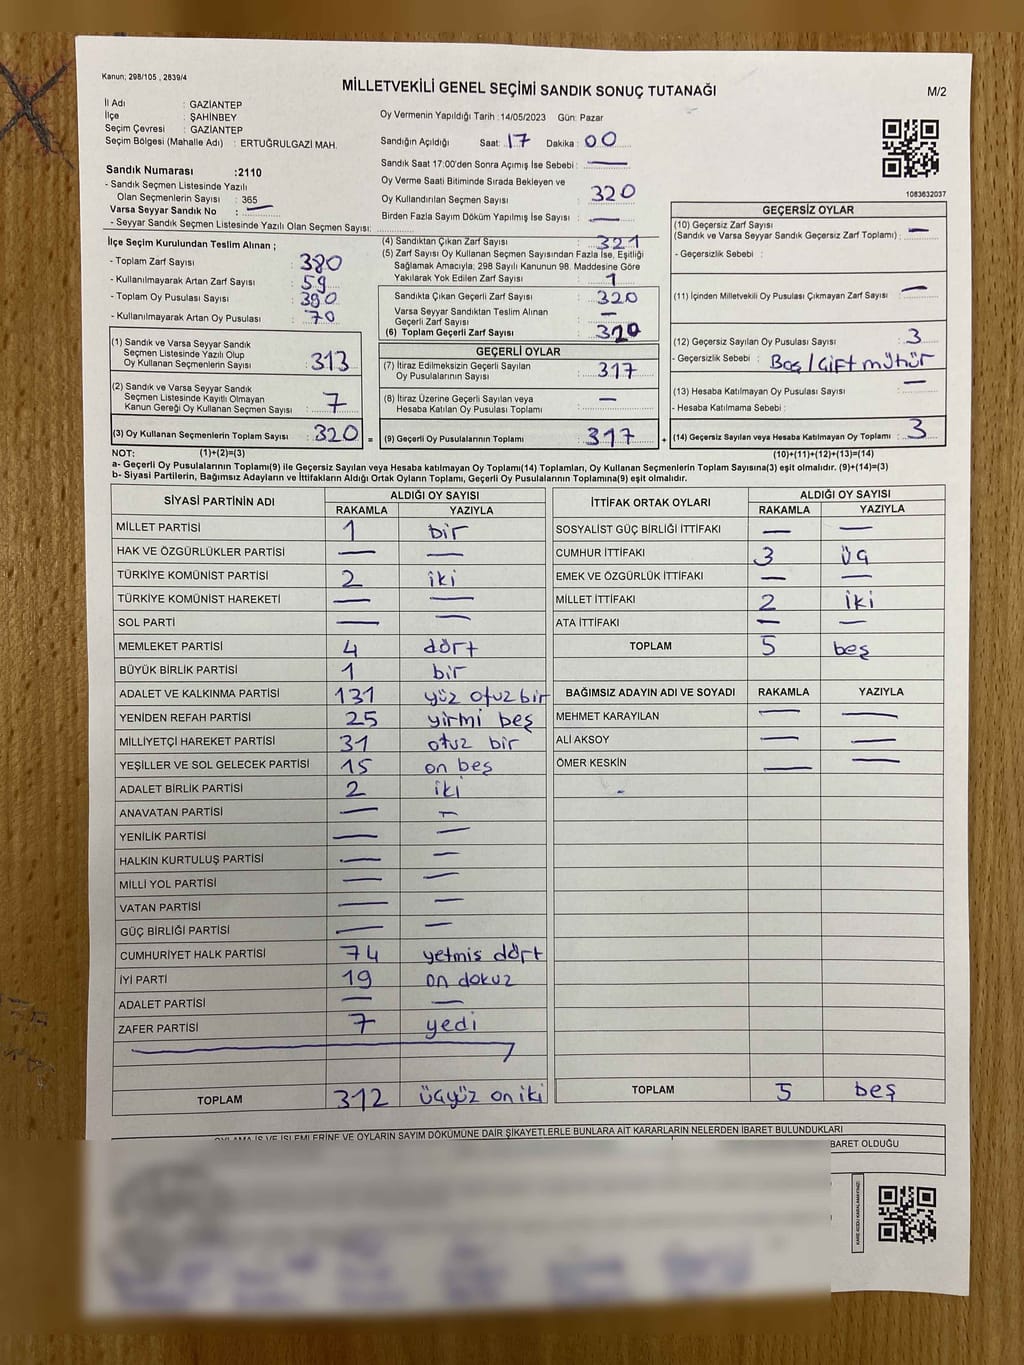 Kanun; 298/105 , 2839/4
MİLLETVEKİLİ GENEL SEÇİMİ SANDIK SONUÇ TUTANAĞI
M/2
İl Adı : GAZİANTEP
İlçe : ŞAHİNBEY
Seçim Çevresi : GAZİANTEP
Seçim Bölgesi (Mahalle Adı) : ERTUĞRULGAZİ MAH.
Oy Vermenin Yapıldığı Tarih : 14/05/2023 Gün: Pazar
Sandığın Açıldığı Saat: 17 Dakika : 00
Sandık Saat 17:00'den Sonra Açımış İse Sebebi : —
Oy Verme Saati Bitiminde Sırada Bekleyen ve
Oy Kullandırılan Seçmen Sayısı : 320
Birden Fazla Sayım Döküm Yapılmış İse Sayısı : —
1083632037
Sandık Numarası :2110
- Sandık Seçmen Listesinde Yazılı
Olan Seçmenlerin Sayısı : 365
Varsa Seyyar Sandık No : —
- Seyyar Sandık Seçmen Listesinde Yazılı Olan Seçmen Sayısı:
İlçe Seçim Kurulundan Teslim Alınan ;
- Toplam Zarf Sayısı : 380
- Kullanılmayarak Artan Zarf Sayısı : 59
- Toplam Oy Pusulası Sayısı : 390
- Kullanılmayarak Artan Oy Pusulası : 70
(1) Sandık ve Varsa Seyyar Sandık
Seçmen Listesinde Yazılı Olup
Oy Kullanan Seçmenlerin Sayısı : 313
(2) Sandık ve Varsa Seyyar Sandık
Seçmen Listesinde Kayıtlı Olmayan
Kanun Gereği Oy Kullanan Seçmen Sayısı : 7
(3) Oy Kullanan Seçmenlerin Toplam Sayısı : 320 =
(4) Sandıktan Çıkan Zarf Sayısı : 321
(5) Zarf Sayısı Oy Kullanan Seçmen Sayısından Fazla İse, Eşitliği
Sağlamak Amacıyla; 298 Sayılı Kanunun 98. Maddesine Göre
Yakılarak Yok Edilen Zarf Sayısı : 1
Sandıkta Çıkan Geçerli Zarf Sayısı : 320
Varsa Seyyar Sandıktan Teslim Alınan
Geçerli Zarf Sayısı : —
(6) Toplam Geçerli Zarf Sayısı : 320
GEÇERLİ OYLAR
(7) İtiraz Edilmeksizin Geçerli Sayılan
Oy Pusulalarının Sayısı : 317
(8) İtiraz Üzerine Geçerli Sayılan veya
Hesaba Katılan Oy Pusulası Toplamı : —
(9) Geçerli Oy Pusulalarının Toplamı : 317 +
GEÇERSİZ OYLAR
(10) Geçersiz Zarf Sayısı
(Sandık ve Varsa Seyyar Sandık Geçersiz Zarf Toplamı) : —
- Geçersizlik Sebebi :
(11) İçinden Milletvekili Oy Pusulası Çıkmayan Zarf Sayısı : —
(12) Geçersiz Sayılan Oy Pusulası Sayısı : 3
- Geçersizlik Sebebi : Boş / Çift mühür
(13) Hesaba Katılmayan Oy Pusulası Sayısı : —
- Hesaba Katılmama Sebebi :
(14) Geçersiz Sayılan veya Hesaba Katılmayan Oy Toplamı : 3
NOT: (1)+(2)=(3) (10)+(11)+(12)+(13)=(14)
a- Geçerli Oy Pusulalarının Toplamı(9) ile Geçersiz Sayılan veya Hesaba katılmayan Oy Toplamı(14) Toplamları, Oy Kullanan Seçmenlerin Toplam Sayısına(3) eşit olmalıdır. (9)+(14)=(3)
b- Siyasi Partilerin, Bağımsız Adayların ve İttifakların Aldığı Ortak Oyların Toplamı, Geçerli Oy Pusulalarının Toplamına(9) eşit olmalıdır.
SİYASİ PARTİNİN ADI ALDIĞI OY SAYISI
RAKAMLA YAZIYLA
MİLLET PARTİSİ 1 bir
HAK VE ÖZGÜRLÜKLER PARTİSİ — —
TÜRKİYE KOMÜNİST PARTİSİ 2 iki
TÜRKİYE KOMÜNİST HAREKETİ — —
SOL PARTİ — —
MEMLEKET PARTİSİ 4 dört
BÜYÜK BİRLİK PARTİSİ 1 bir
ADALET VE KALKINMA PARTİSİ 131 yüz otuz bir
YENİDEN REFAH PARTİSİ 25 yirmi beş
MİLLİYETÇİ HAREKET PARTİSİ 31 otuz bir
YEŞİLLER VE SOL GELECEK PARTİSİ 15 on beş
ADALET BİRLİK PARTİSİ 2 iki
ANAVATAN PARTİSİ — —
YENİLİK PARTİSİ — —
HALKIN KURTULUŞ PARTİSİ — —
MİLLİ YOL PARTİSİ — —
VATAN PARTİSİ — —
GÜÇ BİRLİĞİ PARTİSİ — —
CUMHURİYET HALK PARTİSİ 74 yetmiş dört
İYİ PARTİ 19 on dokuz
ADALET PARTİSİ — —
ZAFER PARTİSİ 7 yedi
TOPLAM 312 üçyüz on iki
İTTİFAK ORTAK OYLARI ALDIĞI OY SAYISI
RAKAMLA YAZIYLA
SOSYALİST GÜÇ BİRLİĞİ İTTİFAKI — —
CUMHUR İTTİFAKI 3 üç
EMEK VE ÖZGÜRLÜK İTTİFAKI — —
MİLLET İTTİFAKI 2 iki
ATA İTTİFAKI — —
TOPLAM 5 beş
BAĞIMSIZ ADAYIN ADI VE SOYADI RAKAMLA YAZIYLA
MEHMET KARAYILAN — —
ALİ AKSOY — —
ÖMER KESKİN — —
TOPLAM 5 beş
OYLAMA İŞ VE İŞLEMLERİNE VE OYLARIN SAYIM DÖKÜMÜNE DAİR ŞİKAYETLERLE BUNLARA AİT KARARLARIN NELERDEN İBARET BULUNDUKLARI
BARET OLDUĞU
KARE KODU KARALAMAYINIZ!